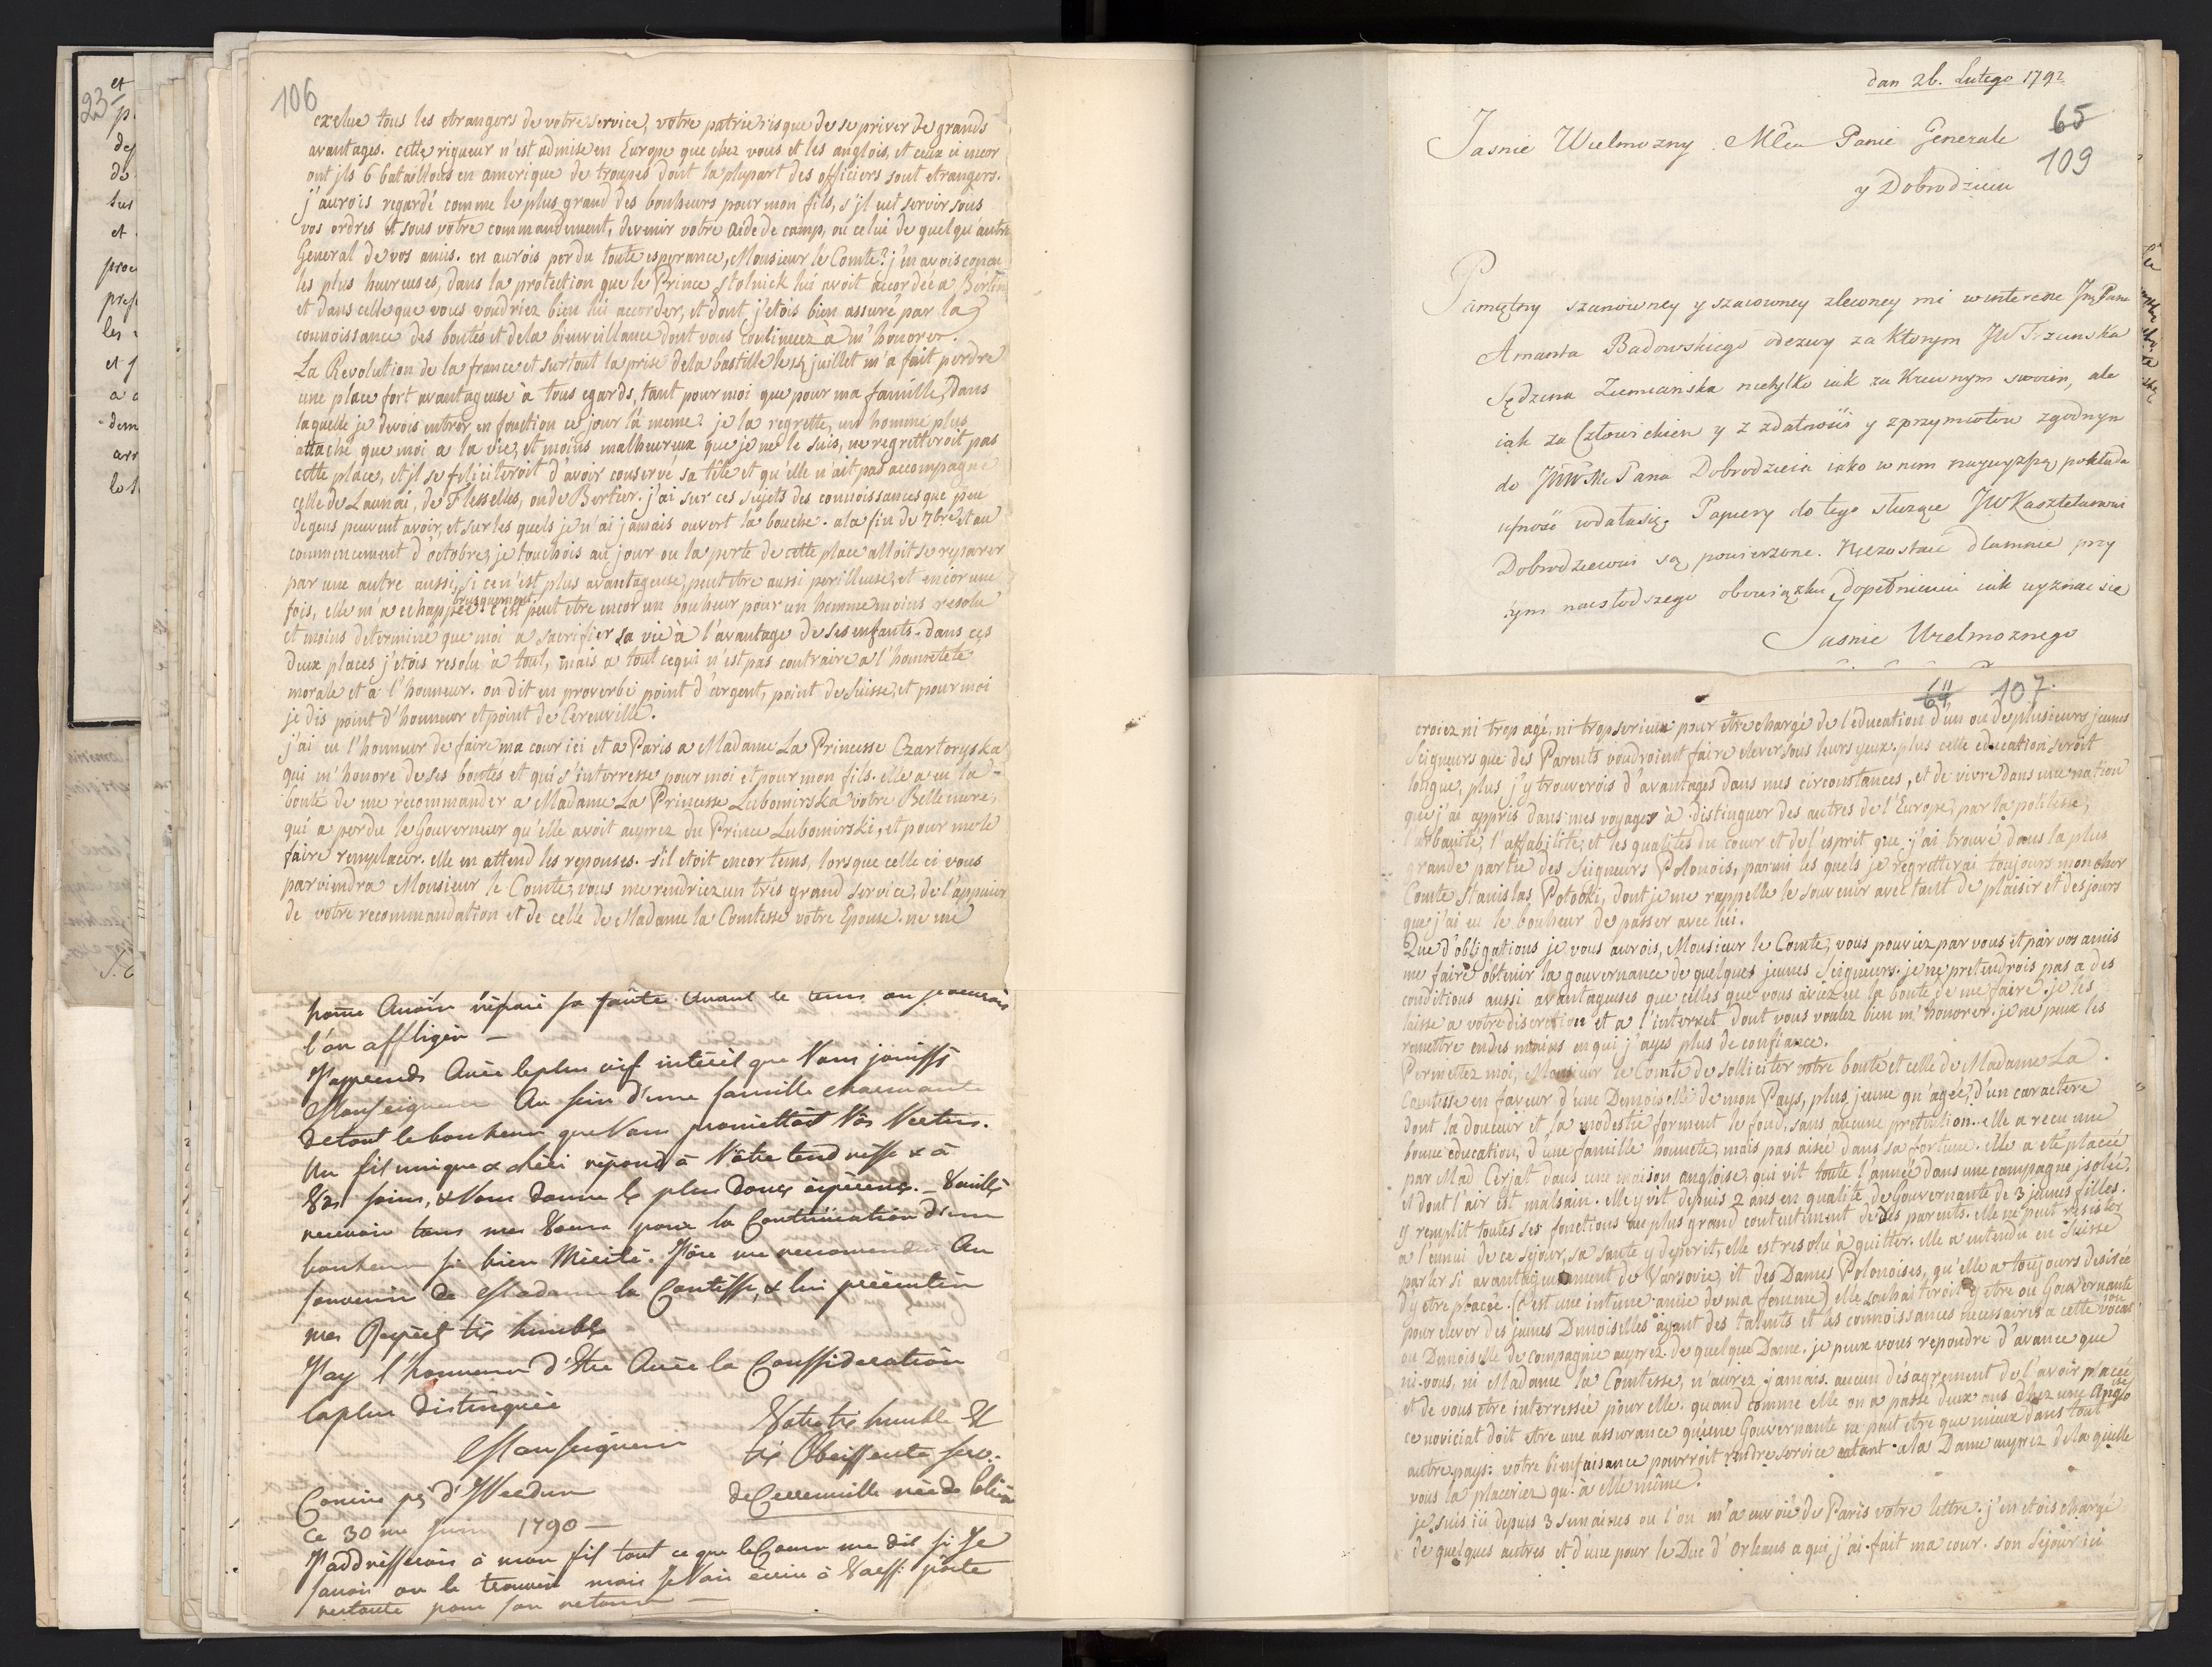 106
exclue tous les etrangers de votre service, votre patrie risque de se priver de grands
avantages. cette rigueur n'est admise en Europe que chez vous et les anglois, et ceux ci encor
ont jls 6 bataillons en amerique de troupes dont la plupart des officiers sont etrangers.
j'aurois regardé comme le plus grand des bonheurs pour mon fils, s'jl eut servir sous
vos ordres et sous votre commandement, devenir votre aide de camp, ou celui de quelqu'autre
General de vos amis. en aurois perdu toute esperance, Monsieur le Comte? j'en avois concu
les plus heureuses, dans la protection que le Prince Stolnick lui avoit accordée a Berlin
et dans celle que vous voudriez bien lui accorder, et dont j'etois bien assuré par la
connoissance des boutés et de la bienveillance dont vous continuez à m'honorer.
La Revolution de la france et surtout la prise de la bastille le 14 juillet m'a fait perdre
une place fort avantageuse à tous egards, tant pour moi que pour ma famille, dans
laquelle je devois entrer en fonction ce jour là meme. je la regrette, un homme plus
attaché que moi a la vie, et moins malheureux que je ne le suis, ne regretteroit pas
cette place, et jl se feliciteroit d'avoir conservé sa tête et qu'elle n'ait pas accompagné
celle de Launai, de Flesselles, ou de Bertier. j'ai sur ces sujets des connoissances que peu
de gens peuvent avoir, et sur les quels je n'ai jamais ouvert la bouche. a la fin de 7bre et au
commencement d'octobre, je touchois au jour ou la perte de cette place alloit se reparer
par une autre aussi, si ce n'est plus avantageuse, peut etre aussi perilleuse, et encor une
fois, elle m'a echappée brusquement. c'est peut etre encor un bonheur pour un homme moins resolu
et moins determiné que moi a sacrifier sa vie à l'avantage de ses enfants. dans ces
deux places j'etois resolu à tout, mais a tout ce qui n'est pas contraire a l'honneteté
morale et a l'honneur. on dit en proverbe point d'argent, point de Suisse, et pour moi
je dis point d'honneur et point de Cerenville.
j'ai eu l'honneur de faire ma cour ici et a Paris a Madame La Princesse Czartoryska
qui m'honore de ses bontés et qui s'interresse pour moi et pour mon fils. elle a eu la
bonté de me recommander a Madame La Princesse Lubomirska votre Belle mere,
qui a perdu le Gouverneur qu'elle avoit auprez du Prince Lubomirski, et pour me le
faire remplacer. elle en attend les reponses. s'il etoit encor tems, lorsque celle ci vous
parviendra Monsieur le Comte, vous me rendriez un trés grand service, de l'appuier
de votre recommandation et de celle de Madame la Comtesse votre Epouse. ne me
l'on affliger —
J'apprends Avec le plus vif intérêt que Vous jouissés
Monseigneur Au sein d'une famille charmante
de tout le bonheur que Vous promettoit Vos Vertus.
Un fils unique & chéri répond à Vôtre tendresse & à
Vos soins, & Vous donne les plus douces espérances. — Veuillés
recevoir tous mes Voeux pour la Continuation d'un
bonheur si bien Mérité. J'ôse me recomender Au
souvenir de Madame la Comtesse, & lui présenter
mes Respects très humbles
J'ay l'honneur d'Etre Avec la Conssideration
la plus distinguée
Monseigneur
Votre très humble Et
très Obeissante serv.
de Cerenville née de
Ce 30me Juin 1790 —
J'addresserois à mon fils tout ce que le Coeur me dit si Je
savois ou le trouver mais Je Vais écrire à poste
restante pour son retour —
dan 26. Lutego 1792
65
109
Jasnie Wielmozny Mści Panie Generale
y Dobrodzieiu
Pamiętny szanowney y szacowney zlewney mi w interesie Jmć Pana
Amanta Badowskiego odezwy za ktorym JW Trzcinska
Sędzina Ziemianska nietylko iak za Krewnym swoim, ale
iak za Człowiekiem y z zdatnosci y z przymiotow zgodnym
do JWW Pana Dobrodzieia iako w nim naywyzszą pokłada
ufność udałasię. Papiery do tego sluzące JW Kasztelanowi
Dobrodziewoi są powierzone. przy
obowiązku dopełnieniu iak wyznac się
Jasnie Wielmoznego
64 107.
croiez ni trop agé, ni trop serieux pour être chargé de l'éducation d'un ou de plusieurs jeunes
Seigneurs que des Parents voudroient faire elever sous leurs yeux. plus cette education seroit
longue, plus j'y trouverois d'avantages dans mes circonstances, et de vivre dans une nation
que j'ai appris dans mes voyages à distinguer des autres de l'Europe, par la politesse,
l'urbanité, l'affabilité, et les qualités du coeur et de l'esprit que j'ai trouvé dans la plus
grande partie des Seigneurs Polonois, parmi les quels je regretterai toujours mon cher
Comte Stanislas Potocki, dont je me rappelle le souvenir avec tant de plaisir et des jours
que j'ai eu le bonheur de passer avec lui.
Que d'obligations je vous aurois, Monsieur le Comte, vous pouviez par vous et par vos amis
me faire obtenir la gouvernance de quelques jeunes Seigneurs. je ne pretendrois pas a des
conditions aussi avantageuses que celles que vous aviez eu la bonté de me faire. je les
laisse a votre discretion et a l'interest dont vous voulez bien m'honorer. je ne peux les
remettre en des mains en qui j'ayes plus de confiance.
Permettez moi, Monsieur le Comte de solliciter votre bonté et celle de Madame La
Comtesse en faveur d'une Demoiselle de mon Pays, plus jeune qu'agée, d'un caractere
dont la douceur et la modestie forment le fond, sans aucune pretention. elle a recu une
bonne education, d'une famille honnete, mais pas aisée dans sa fortune. elle a eté placée
par Mad Cerjat dans une maison angloise, qui vit toute l'année dans une campagne jsolée,
et dont l'air est malsain. elle y vit depuis 2 ans en qualité de Gouvernante de 3 jeunes filles.
y remplit toutes ses fonctions au plus grand contentement de ses parents. elle ne peut resister
a l'ennui de ce sejour, sa santé y deperit, elle est resolu à quitter. elle a entendu en Suisse
parler si avantageusement de Varsovie, et des Dames Polonoises, qu'elle a toujours desirée
d'y etre placée. (c'est une intime amie de ma femme) elle souhaiteroit y etre ou Gouvernante
pour elever des jeunes Demoiselles ayant des talents et les connoissances necessaires a cette vocation
ou Demoiselle de compagnie auprez de quelque Dame. je peux vous repondre d'avance que
ni vous, ni Madame la Comtesse, n'aurez jamais aucun désagrement de l'avoir placée
et de vous etre interressée pour elle. quand comme elle on a passé deux ans chez une Anglo
ce noviciat doit etre une assurance qu'une Gouvernante ne peut etre que mieux dans tout
autre pays: votre bienfaisance pourroit rendre service autant a la Dame auprez de la quelle
vous la placeriez qu'à elle même.
je suis ici depuis 3 semaines ou l'on m'a envoié de Paris votre lettre. j'en etois chargé
de quelques autres et d'une pour le Duc d'Orleans a qui j'ai fait ma cour. son sejour ici